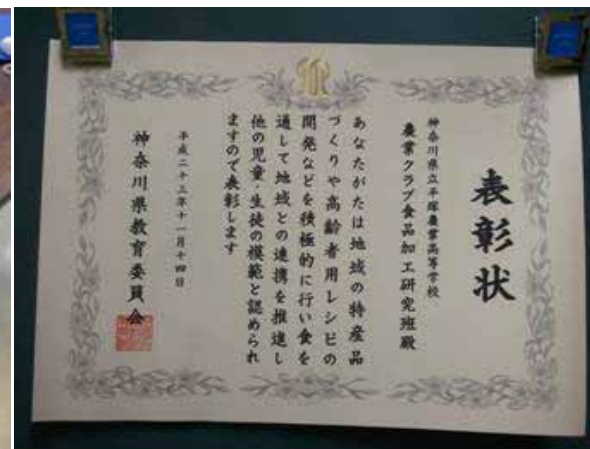 表彰状
神奈川県立平塚農業高等学校
農業クラブ食品加工研究班殿
あなたがたは地域の特産品
づくりや高齢者用レシピの
開発などを積極的に行い食を
通して地域との連携を推進し
他の児童・生徒の模範と認められ
ますので表彰します
平成二十三年十一月十四日
神奈川県教育委員会